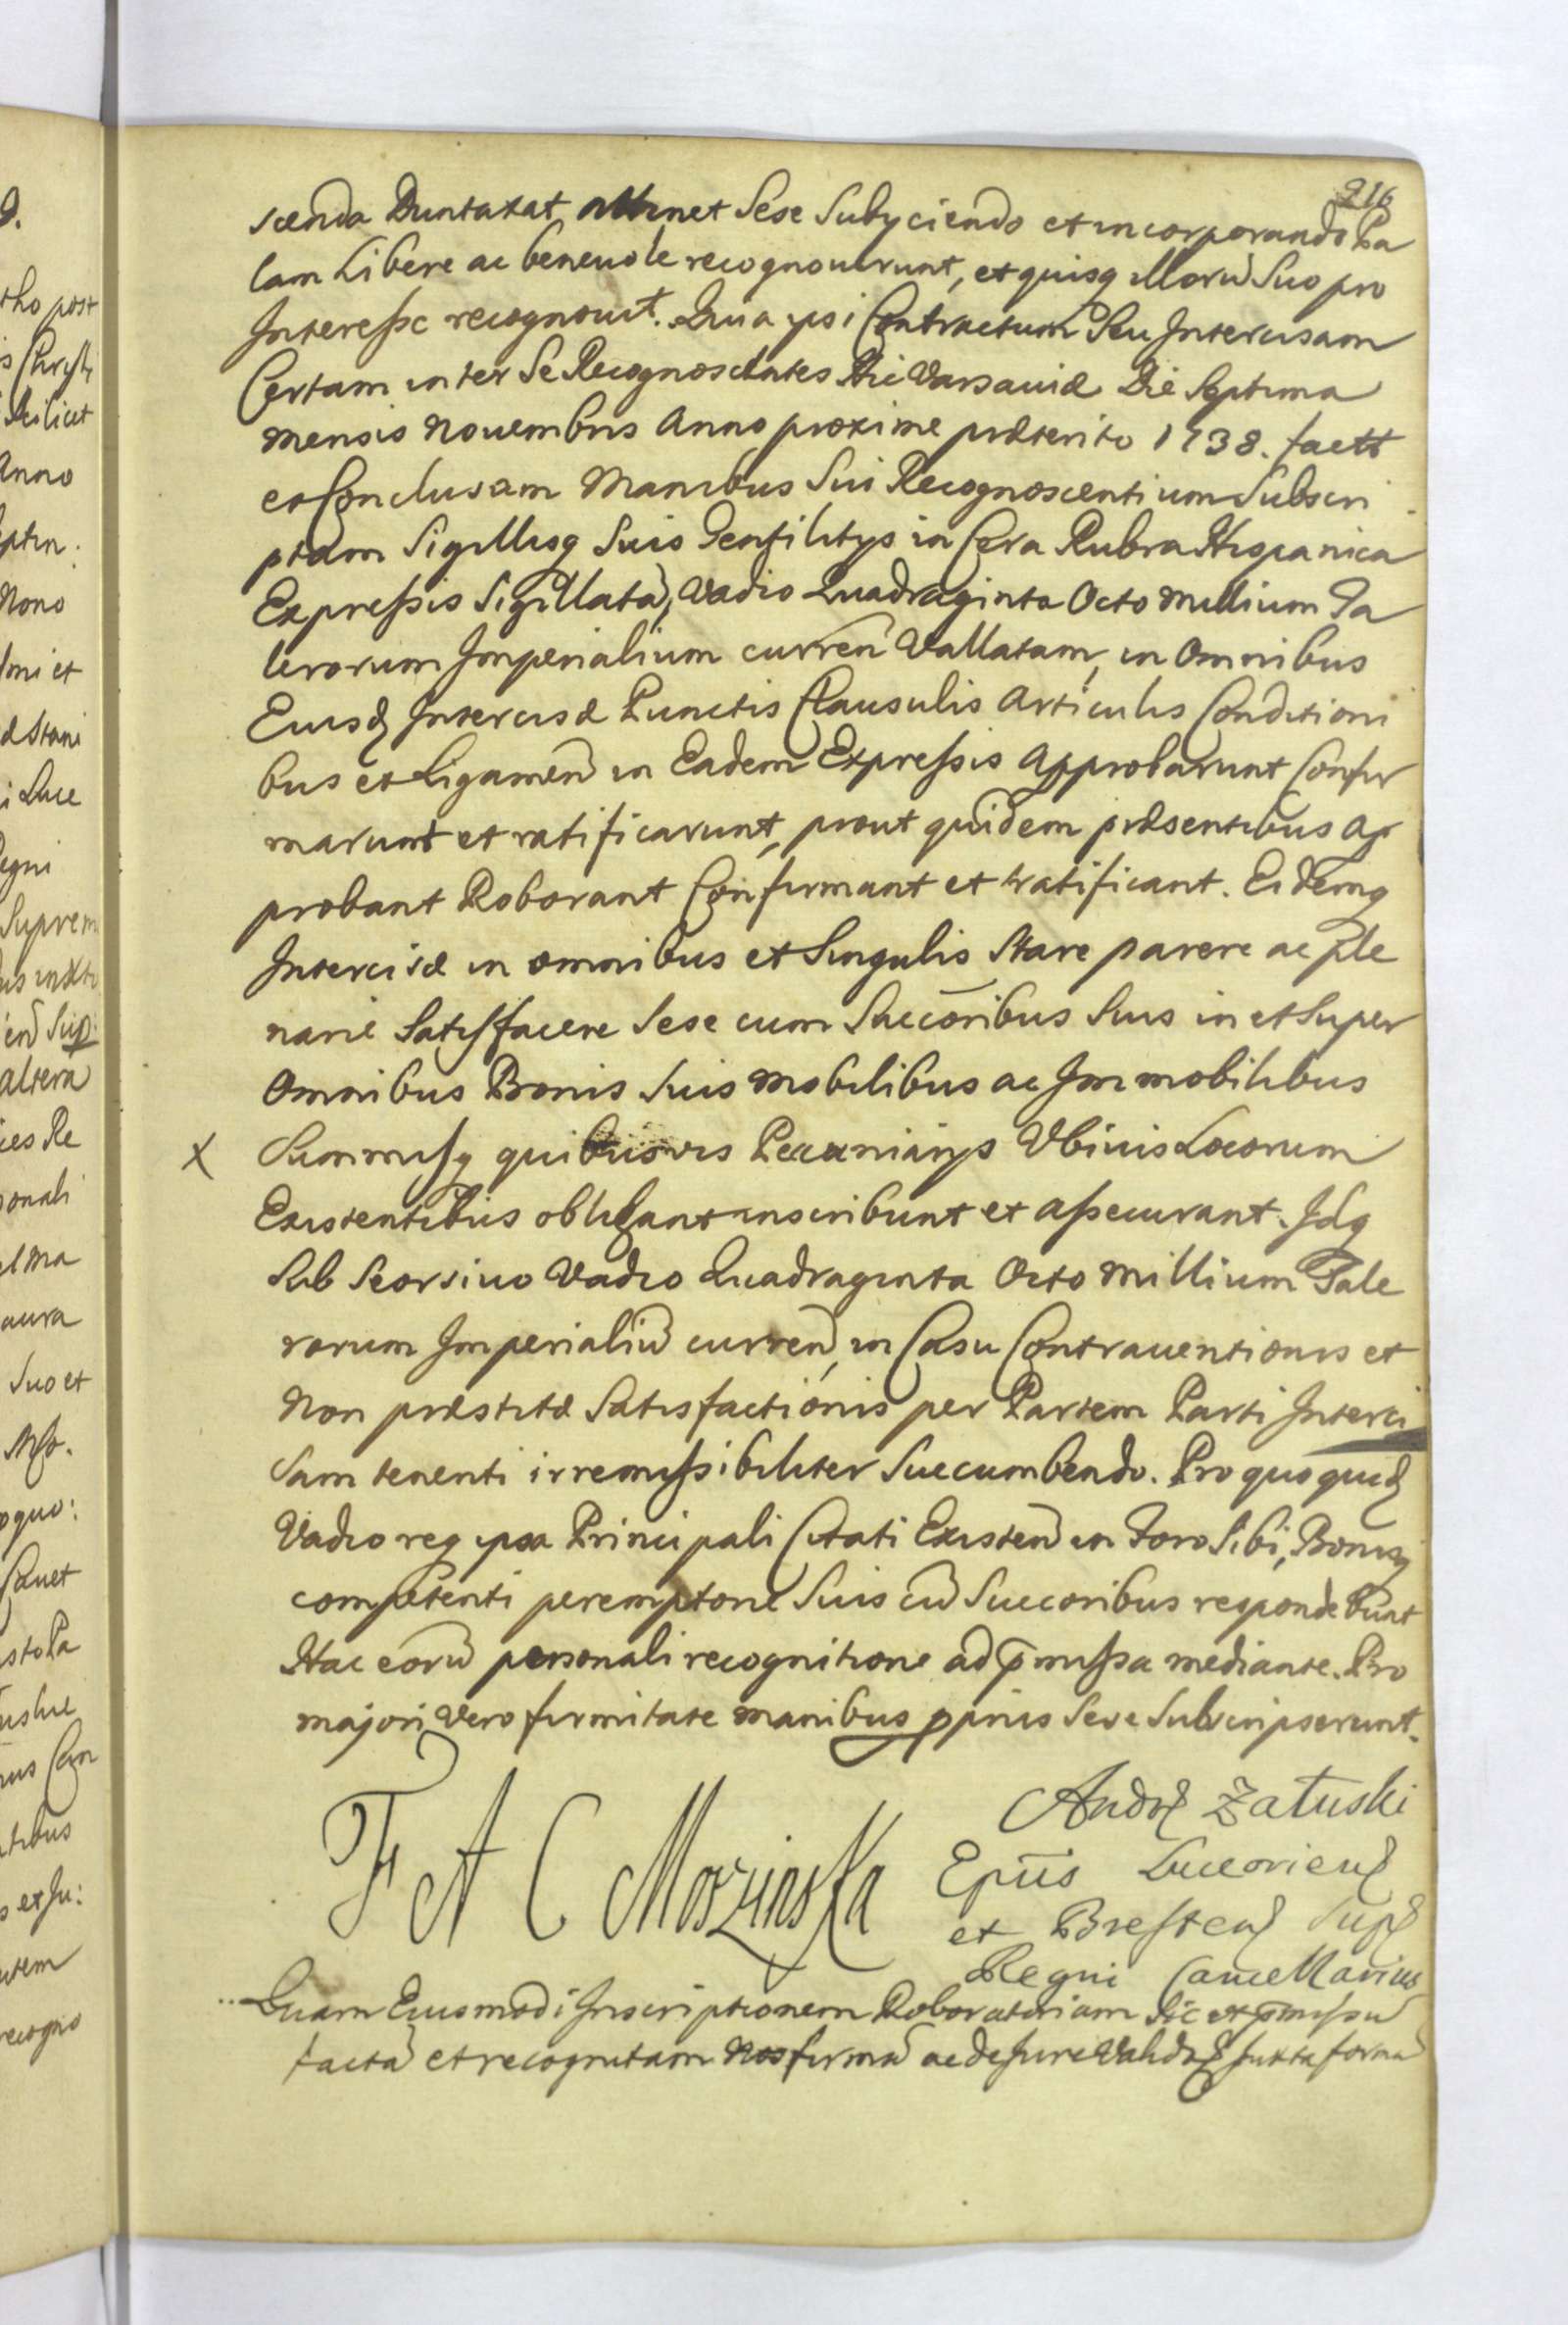 216
scenda Duntaxat attinet Sese Subyciendo et incorporando Pa
lam Libere ac beneuole recognouerunt, et quisq Illorũ Suo pro
Interesse recognouit. Quia ipsi Contractum Seu Intercisam
Certam inter Se Recognoscentes Hic Varsauiæ Die Septima
mensis Nouembris Anno proxime præterito 1738. factt
et Conclusam Manibus Sui Recognoscentium Subscri
ptam Sigillisq Suis Gentilitys in Cera Rubra Hispanica
Expressis Sigillatã, Vadio Quadraginta Octo Millium Ta
lerorum Imperialium curreñ Vallatam, in Omnibus
Eiusd Intercisæ Punctis Clausulis Articulis Conditioni
bus et Ligameñ in Eadem Expressis Approbarunt Confir
marunt et ratificarunt, prout quidem præsentibus Ap
probant Roborant Confirmant et ratificant. Eidemq
Intercisæ in omnibus et Singulis Stare parere ac ple
narie Satisfacere Sese cum Succoribus Suis in et Super
Omnibus Bonis Suis Mobilibus ac Immobilibus
X Summisq quibusvis Pecuniarys Vbiuis Locorum
Existentibus obligant inscribunt et assecurant. Idq
Sub Seorsiuo Vadio Quadraginta Octo Millium Tale
rorum Imperialiũ curreñ, in Casu Contrauentionis et
Non præstitæ Satisfactionis per Partem Parti Interci
sam tenenti irremissibiliter Succumbendo. Pro quo quid
Vadio req ipsa Principali Citati Existeñ in Foro Sibi, Bonisq
competenti peremptorie Suis cũ Succoribus respondebunt
Hac eorũ personali recognitione ad p̃missa mediante. Pro
majori Vero firmitate manibus pprius Sese Subscripserunt.
F A C Moszinska
Andr Załuski
Epũs Luceorien
et Bresten Sup
Regni Cancellarius
Quam Eiusmodi Inscriptionem Roboratoriam Sic ut p̃missũ
factã et recognitam Nos firmã ac de Jure Validã Juxta formã